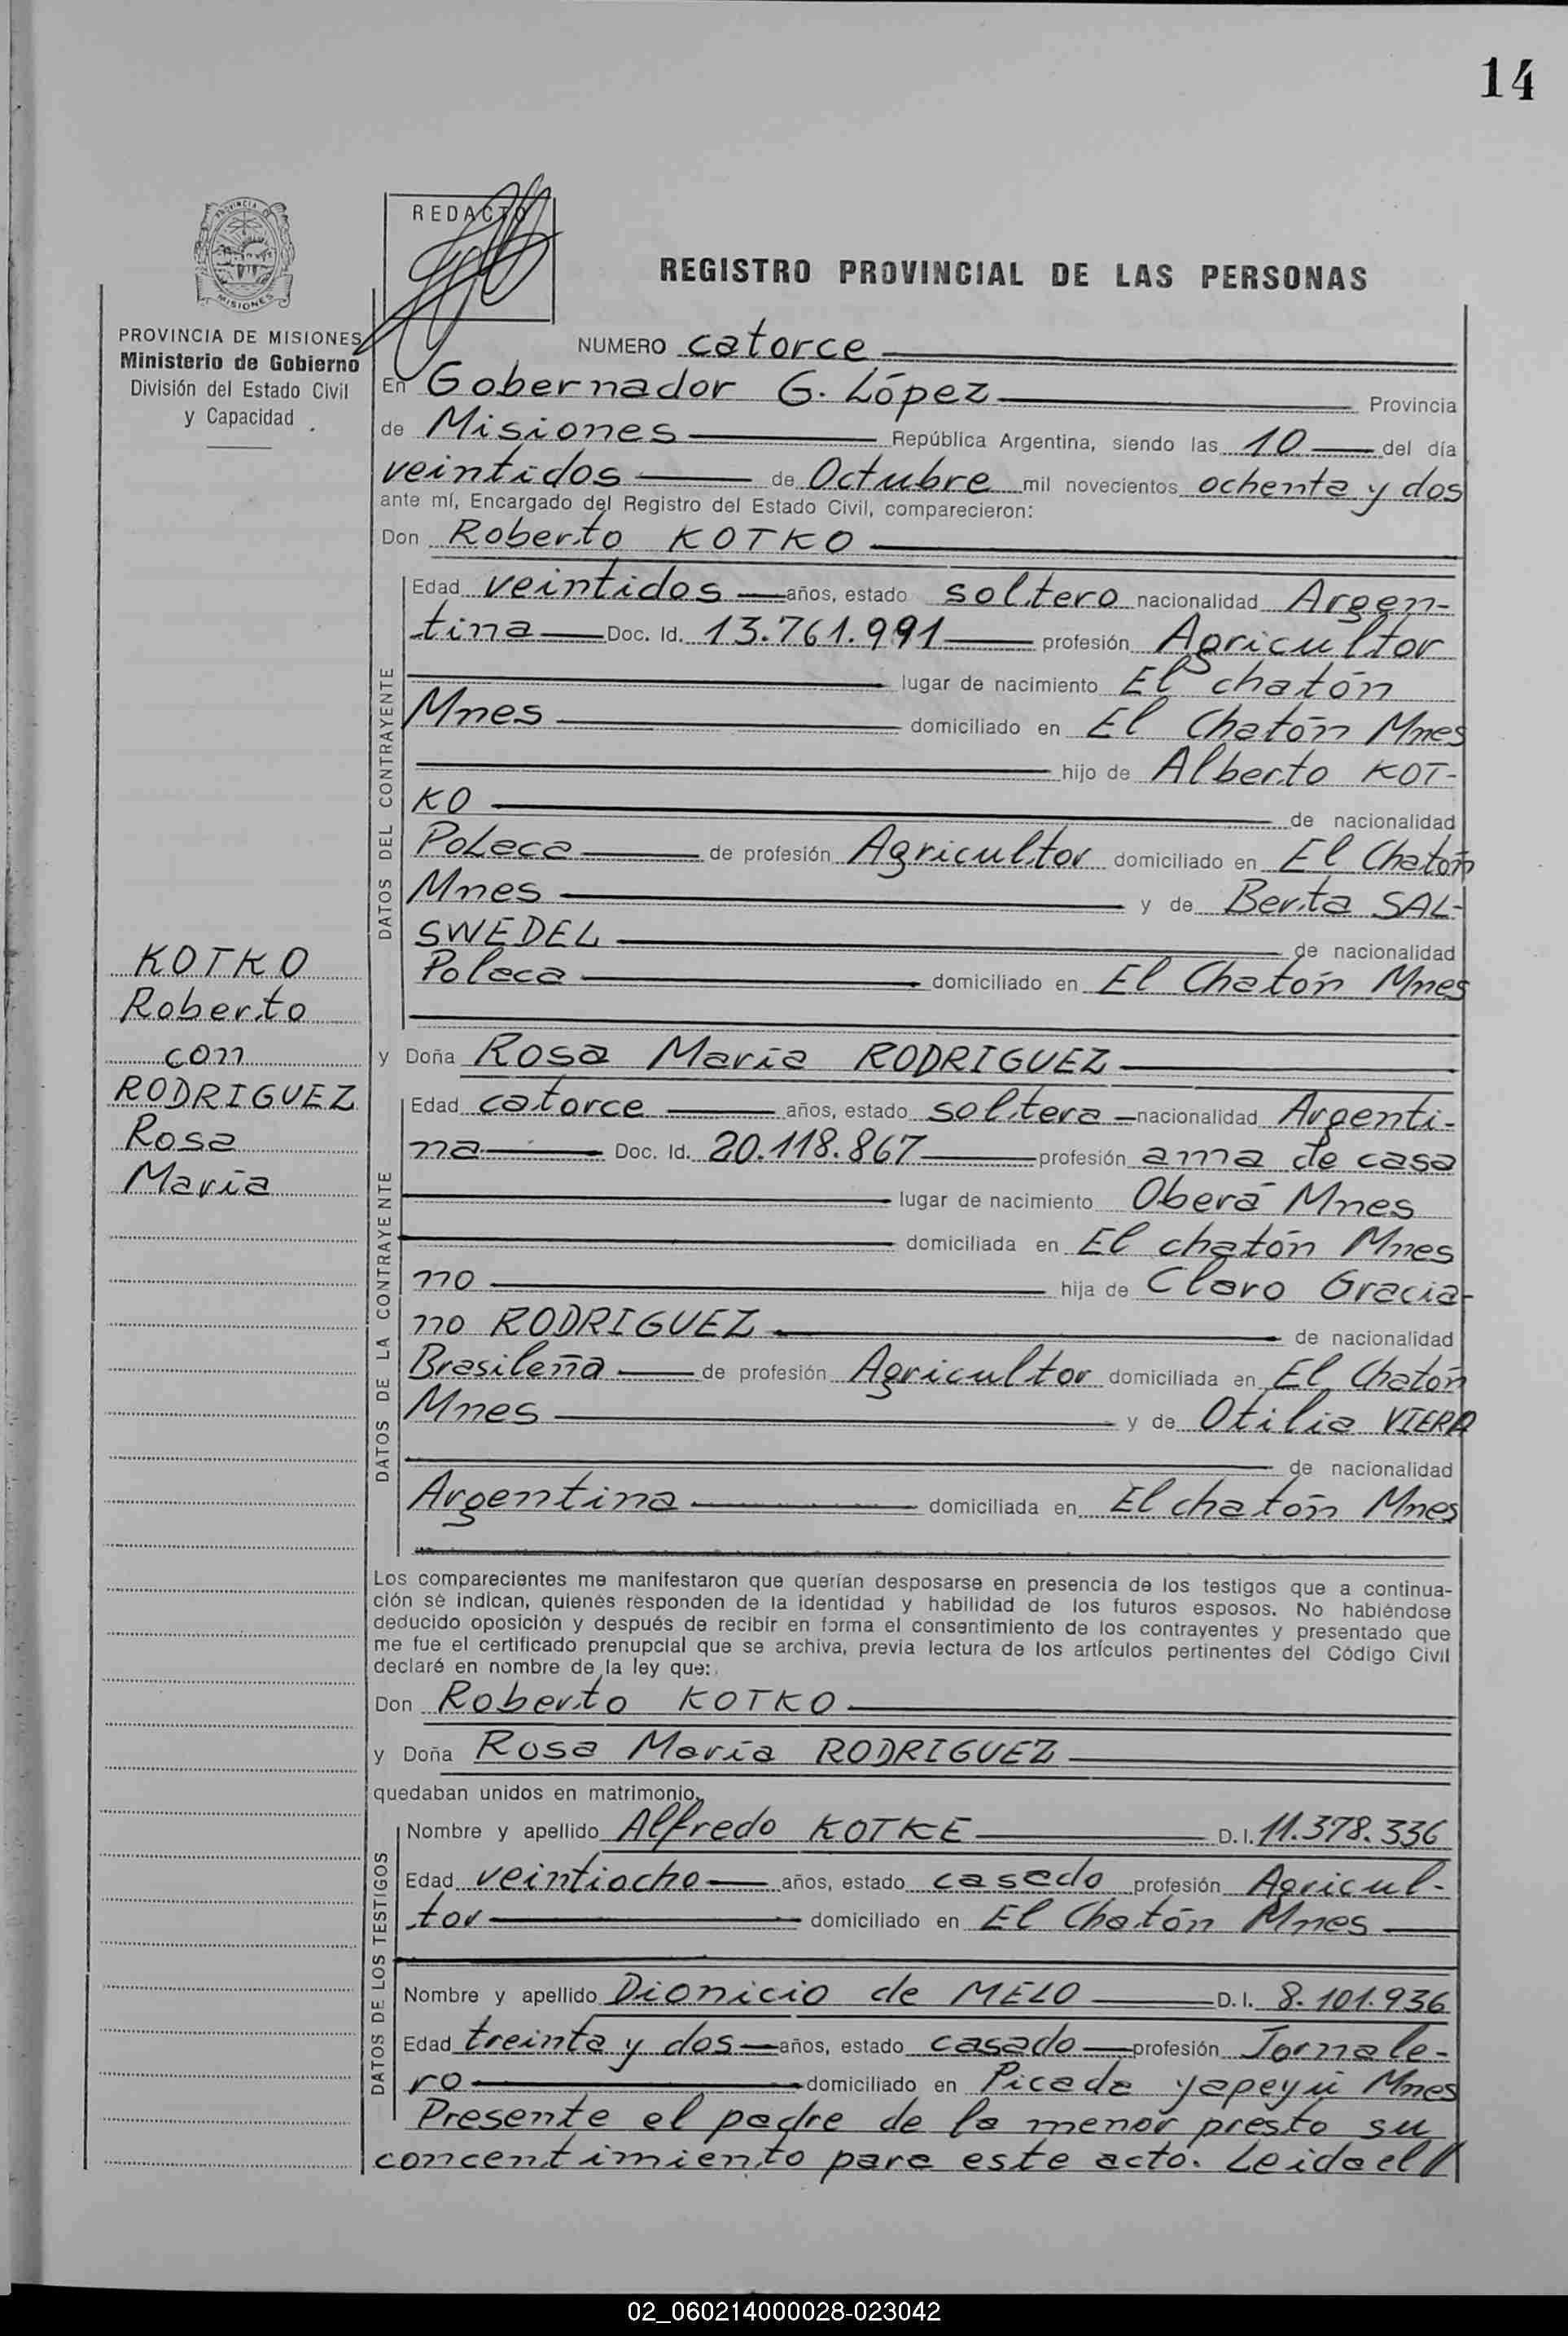 14
REDACTO
REGISTRO PROVINCIAL DE LAS PERSONAS
PROVINCIA DE MISIONES
Ministerio de Gobierno
División del Estado Civil
y Capacidad
NUMERO catorce
En Gobernador G. López Provincia
de Misiones República Argentina, siendo las 10 del día
veintidos de Octubre mil novecientos ochenta y dos
ante mí, Encargado del Registro del Estado Civil, comparecieron:
Don Roberto KOTKO
DATOS DEL CONTRAYENTE
Edad veintidos años, estado soltero nacionalidad Argen-
tina Doc. Id. 13.761.991 profesión Agricultor
lugar de nacimiento El chatón
Mnes domiciliado en El Chatón Mnes
hijo de Alberto KOT-
KO de nacionalidad
Poleca de profesión Agricultor domiciliado en El Chatón
Mnes y de Berta SAL-
SWEDEL de nacionalidad
Poleca domiciliado en El Chatón Mnes
KOTKO
Roberto
con
RODRIGUEZ
Rosa
María
y Doña Rosa María RODRIGUEZ
DATOS DE LA CONTRAYENTE
Edad catorce años, estado soltera nacionalidad Argenti-
na Doc. Id. 20.118.867 profesión ama de casa
lugar de nacimiento Oberá Mnes
domiciliada en El chatón Mnes
no hija de Claro Gracia-
no RODRIGUEZ de nacionalidad
Brasileña de profesión Agricultor domiciliada en El Chatón
Mnes y de Otilia VIERA
de nacionalidad
Argentina domiciliada en El chatón Mnes
Los comparecientes me manifestaron que querían desposarse en presencia de los testigos que a continua-
ción se indican, quienes responden de la identidad y habilidad de los futuros esposos. No habiéndose
deducido oposición y después de recibir en forma el consentimiento de los contrayentes y presentado que
me fue el certificado prenupcial que se archiva, previa lectura de los artículos pertinentes del Código Civil
declaré en nombre de la ley que:
Don Roberto KOTKO
y Doña Rosa María RODRIGUEZ
quedaban unidos en matrimonio.
DATOS DE LOS TESTIGOS
Nombre y apellido Alfredo KOTKE D.I. 11.378.336
Edad veintiocho años, estado casado profesión Agricul-
tor domiciliado en El Chatón Mnes
Nombre y apellido Dionicio de MELO D.I. 8.101.936
Edad treinta y dos años, estado casado profesión Jornale-
ro domiciliado en Picada yapeyú Mnes
Presente el padre de la menor presto su
concentimiento para este acto. Leida el //
02_060214000028-023042